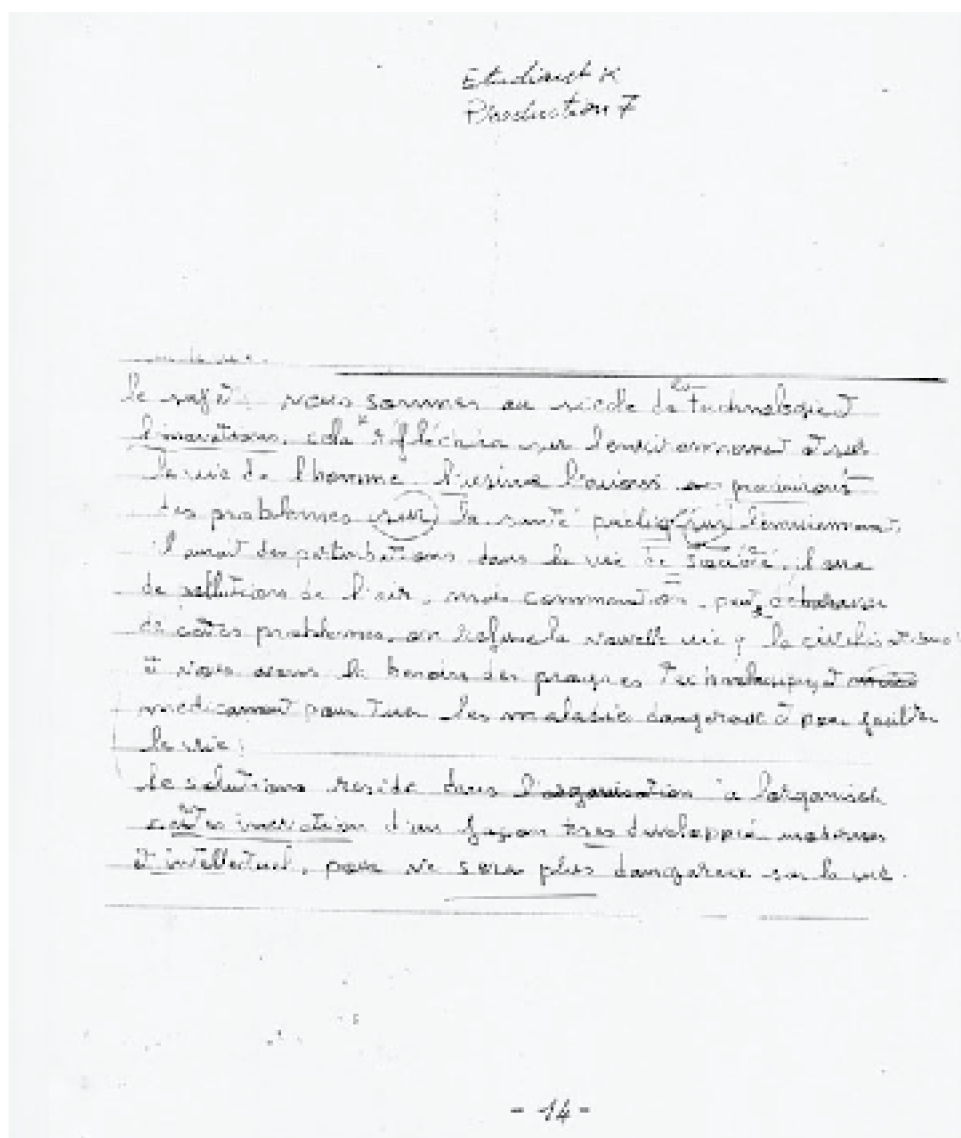 Etudiant K
Production 7
la vie.
le sujet : nous sommes au siecle de la technologie et
l'inovations, cela réfléchira sur l'environnement et sur
la vie de l'homme l'usine l'avions
des problemes sur la santé public sur
il aurait des perturbations dans la vie de société, il aura
de pollutions de l'air, mais comment on peut
de cettes problemes, on refuse la nouvelle vie, la civilisations
et nous avons le besoins des progres technologiques et
medicament pour tuer les maladie dangereux et pour facilite
la vie :
le solutions reside dans l'organisation à l'organisé
cettes inovation d'un façon tres developpée modernes
et intellectuel, pour ne sera plus dangereux sur la vie.
- 14 -